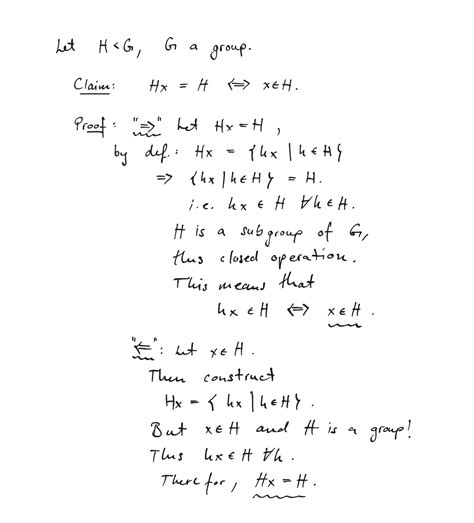 Let H<G, G a group.
Claim: Hx = H ⇔ x∈H.
Proof: "⇒" Let Hx = H,
by def.: Hx = {hx | h∈H}
⇒ {hx | h∈H} = H.
i.e. hx ∈ H ∀h∈H.
H is a subgroup of G,
thus closed operation.
This means that
hx ∈ H ⇔ x∈H.
"⇐": Let x∈H.
Then construct
Hx = {hx | h∈H}.
But x∈H and H is a group!
Thus hx∈H ∀h.
Therefor, Hx = H.